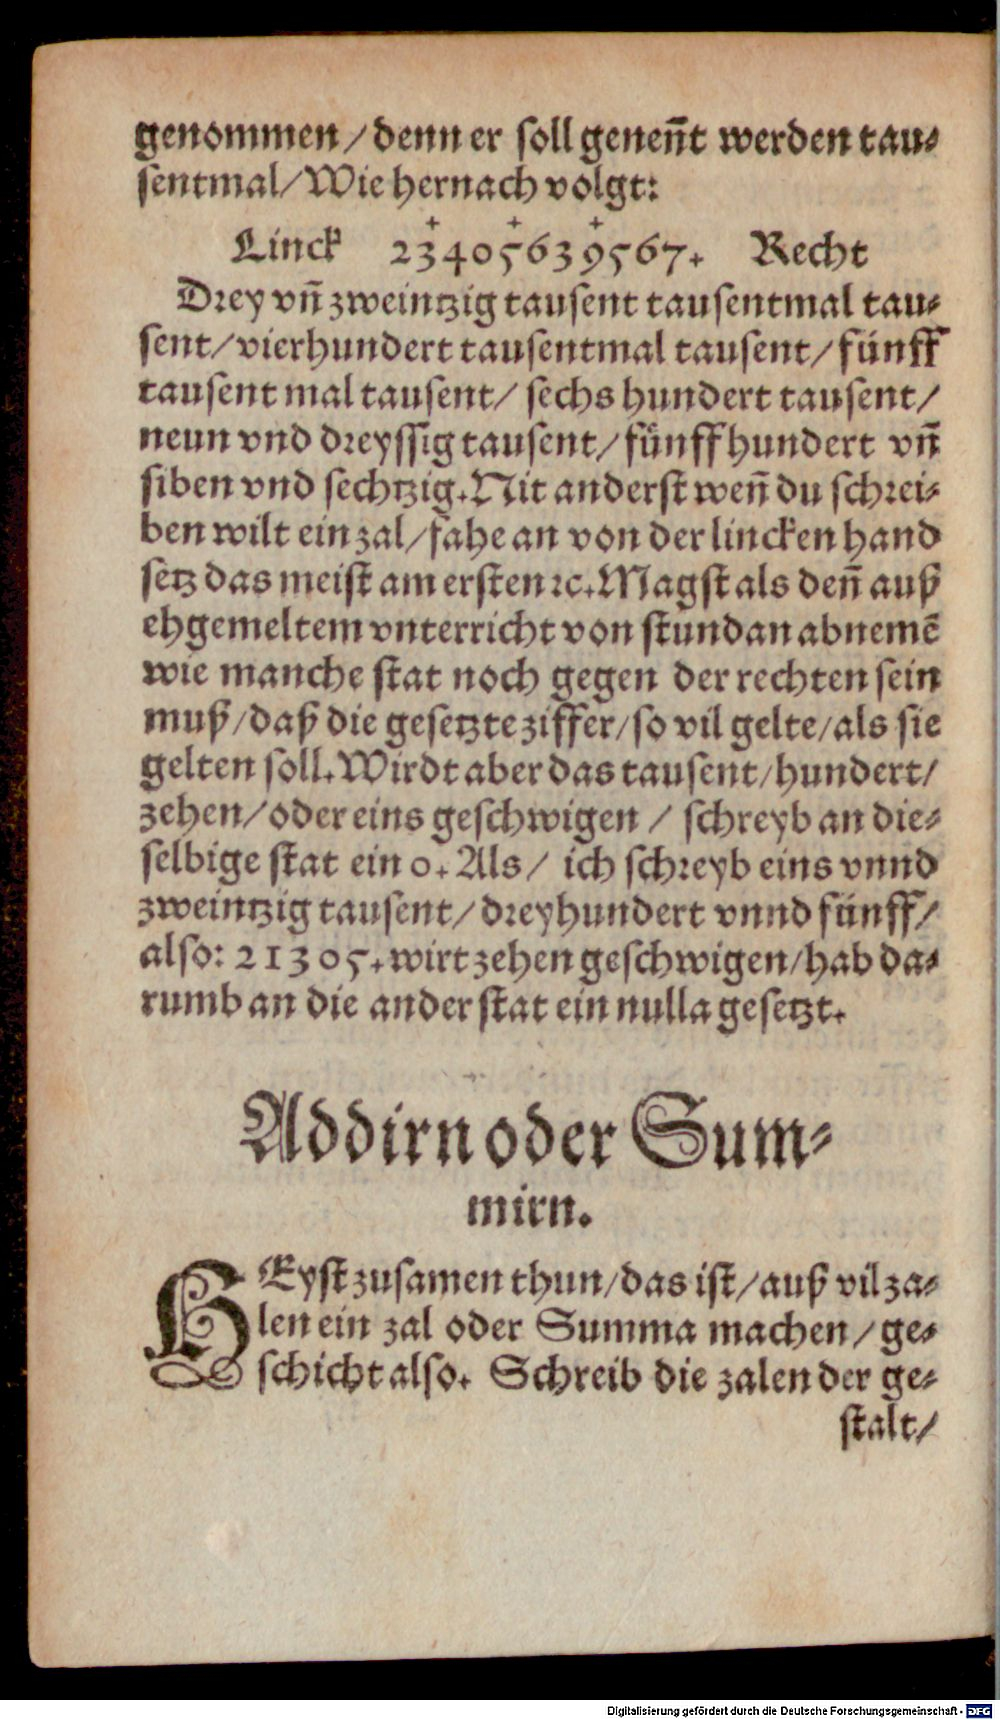 genommen / denn er soll geneñt werden tau⸗
sentmal / Wie hernach volgt:
+ + +
Linck 23405639567. Recht
Drey vñ zweintzig tausent tausentmal tau⸗
sent / vierhundert tausentmal tausent / fünff
tausent mal tausent / sechs hundert tausent /
neun vnd dreyssig tausent / fünffhundert vñ
siben vnd sechtzig. Nit anderst weñ du schrei⸗
ben wilt ein zal / fahe an von der lincken hand
setz das meist am ersten ꝛc. Magst als deñ auß
ehgemeltem vnterricht von stund an abnemẽ
wie manche stat noch gegen der rechten sein
muß / daß die gesetzte ziffer / so vil gelte / als sie
gelten soll. Wirdt aber das tausent / hundert /
zehen / oder eins geschwigen / schreyb an die⸗
selbige stat ein 0. Als / ich schreyb eins vnnd
zweintzig tausent / dreyhundert vnnd fünff /
also: 21305. wirt zehen geschwigen / hab da⸗
rumb an die ander stat ein nulla gesetzt.
Addirn oder Sum⸗
mirn.
HEyst zusamen thun / das ist / auß vil za⸗
len ein zal oder Summa machen / ge⸗
schicht also. Schreib die zalen der ge⸗
stalt /
Digitalisierung gefördert durch die Deutsche Forschungsgemeinschaft - DFG